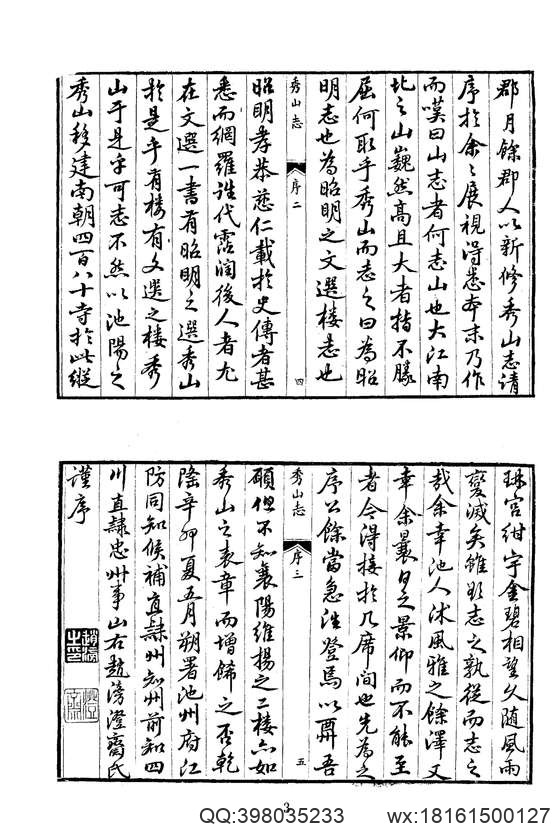 郡月餘郡人以新修秀山志請
序於余余展視得悉本末乃作
而嘆曰山志者何志山也大江南
北之山巍然高且大者指不勝
屈何取乎秀山而志之曰為昭
明志也為昭明之文選樓志也
秀山志
序二
四
昭明孝恭慈仁載於史傳者甚
悉而網羅往代霑潤後人者尤
在文選一書有昭明之選秀山
於是乎有楼有文選之楼秀
山于是乎可志不然以池陽之
秀山移建南朝四百八十寺於此縱
珠宮紺宇金碧相望久随風雨
變滅矣雖欲志之孰從而志之
哉余幸池人沐風雅之餘澤又
幸余曩日之景仰而不能至
者今得接於几席間也先為之
序公餘當急往登焉以酬吾
秀山志
序三
五
願但不知襄陽維揚之二楼亦如
秀山之表章而增餙之否乾
隆辛卯夏五月朔署池州府江
防同知候補直隸州知州前知四
川直隸忠州事山右趙滂澄齋氏
謹序
3
QQ:398035233
wx:18161500127